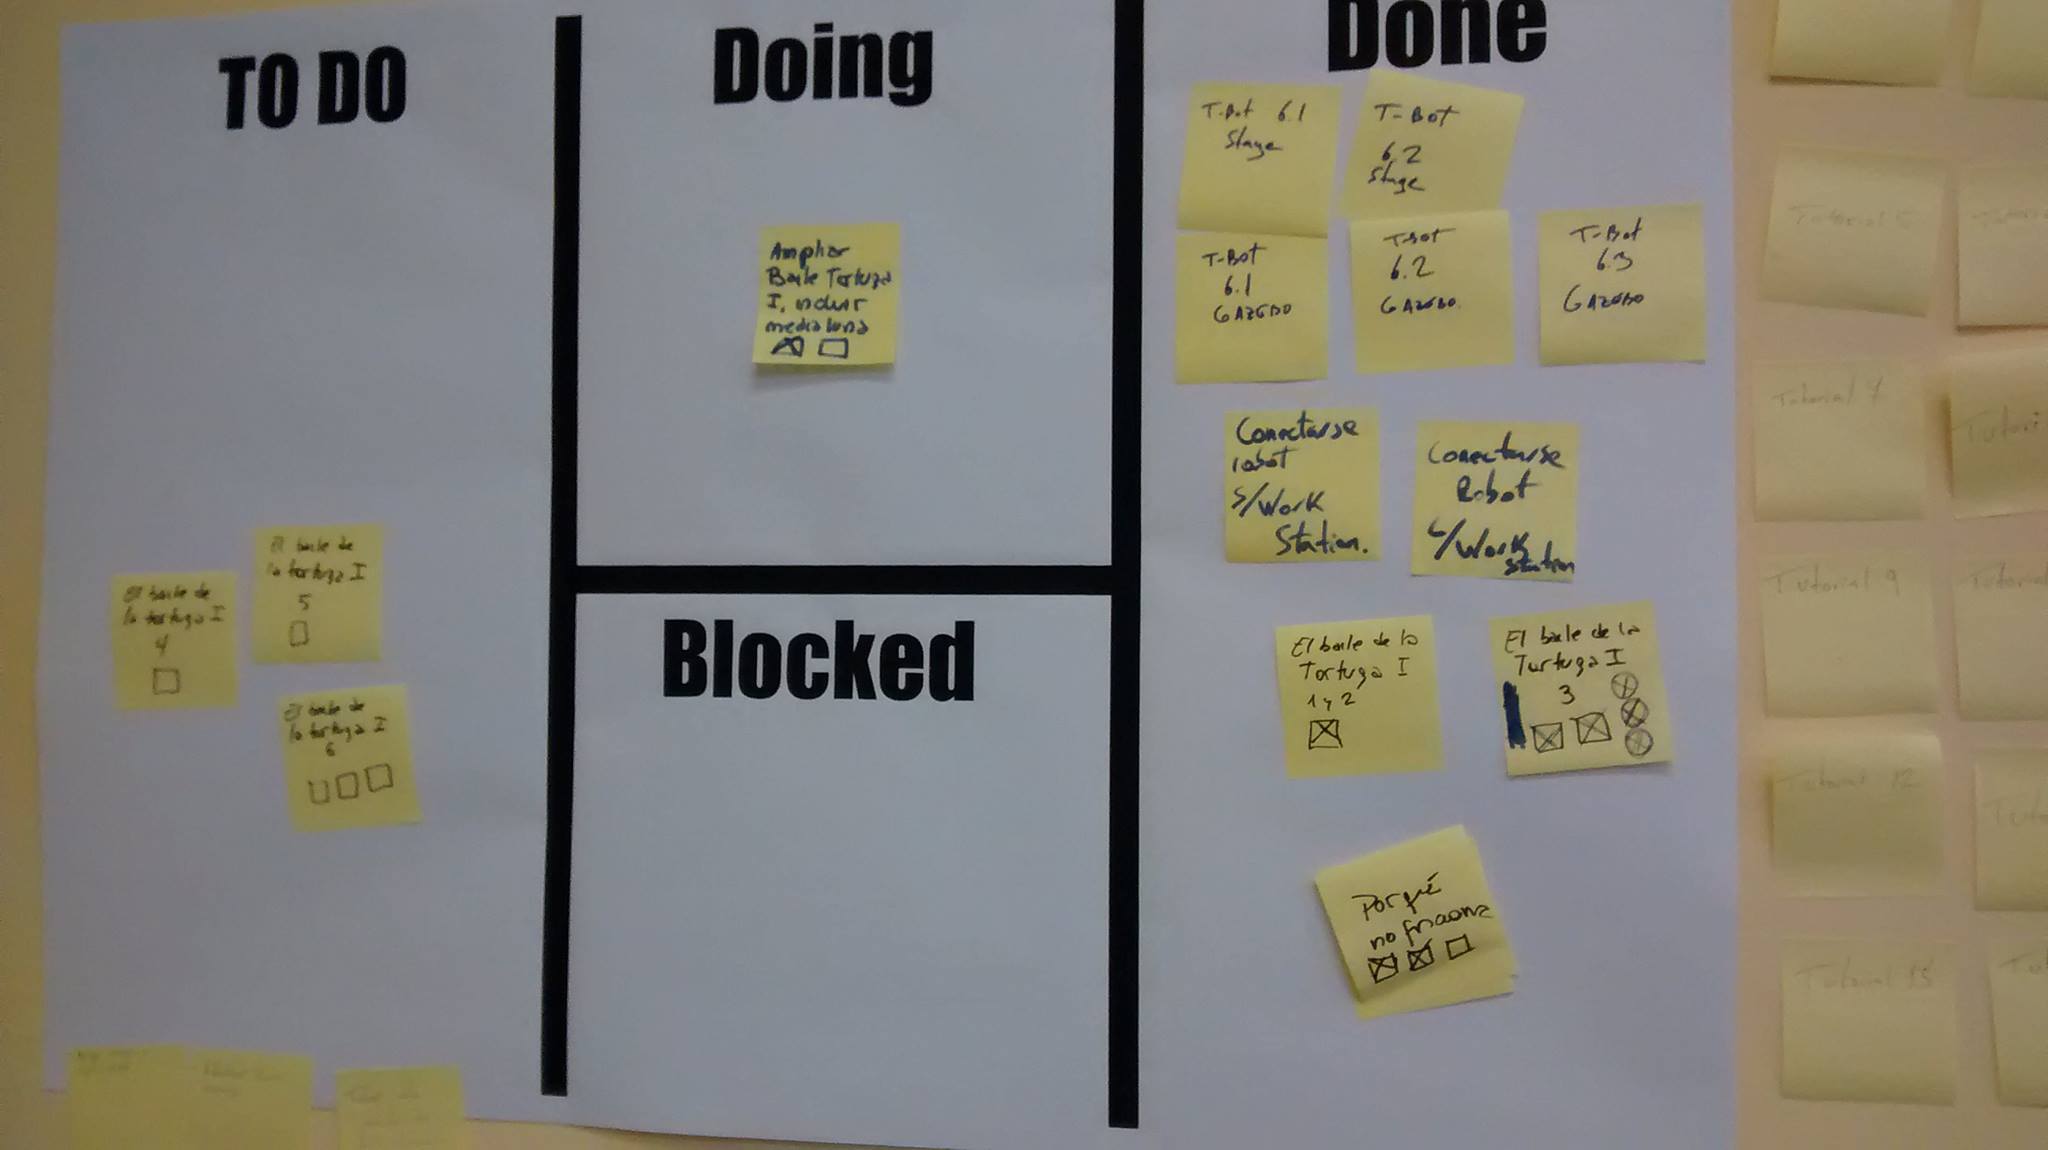 TO DO
El baile de
la tortuga I
4
El baile de
la tortuga I
5
El baile de
la tortuga I
6
Doing
Ampliar
Baile Tortuga
I, incluir
media luna
Blocked
Done
T-Bot 6.1
Stage
T-Bot
6.2
Stage
T-Bot
6.1
GAZEBO
T-Bot
6.2
GAZEBO.
T-Bot
6.3
GAZEBO
Conectarse
robot
S/Work
Station.
Conectarse
Robot
Work
Station
El baile de la
Tortuga I
1 y 2
El baile de la
Tortuga I
3
Porqué
no funciona
Tutorial
Tutorial 7
Tutorial 9
Tutorial
Tutorial 12
Tutorial 15